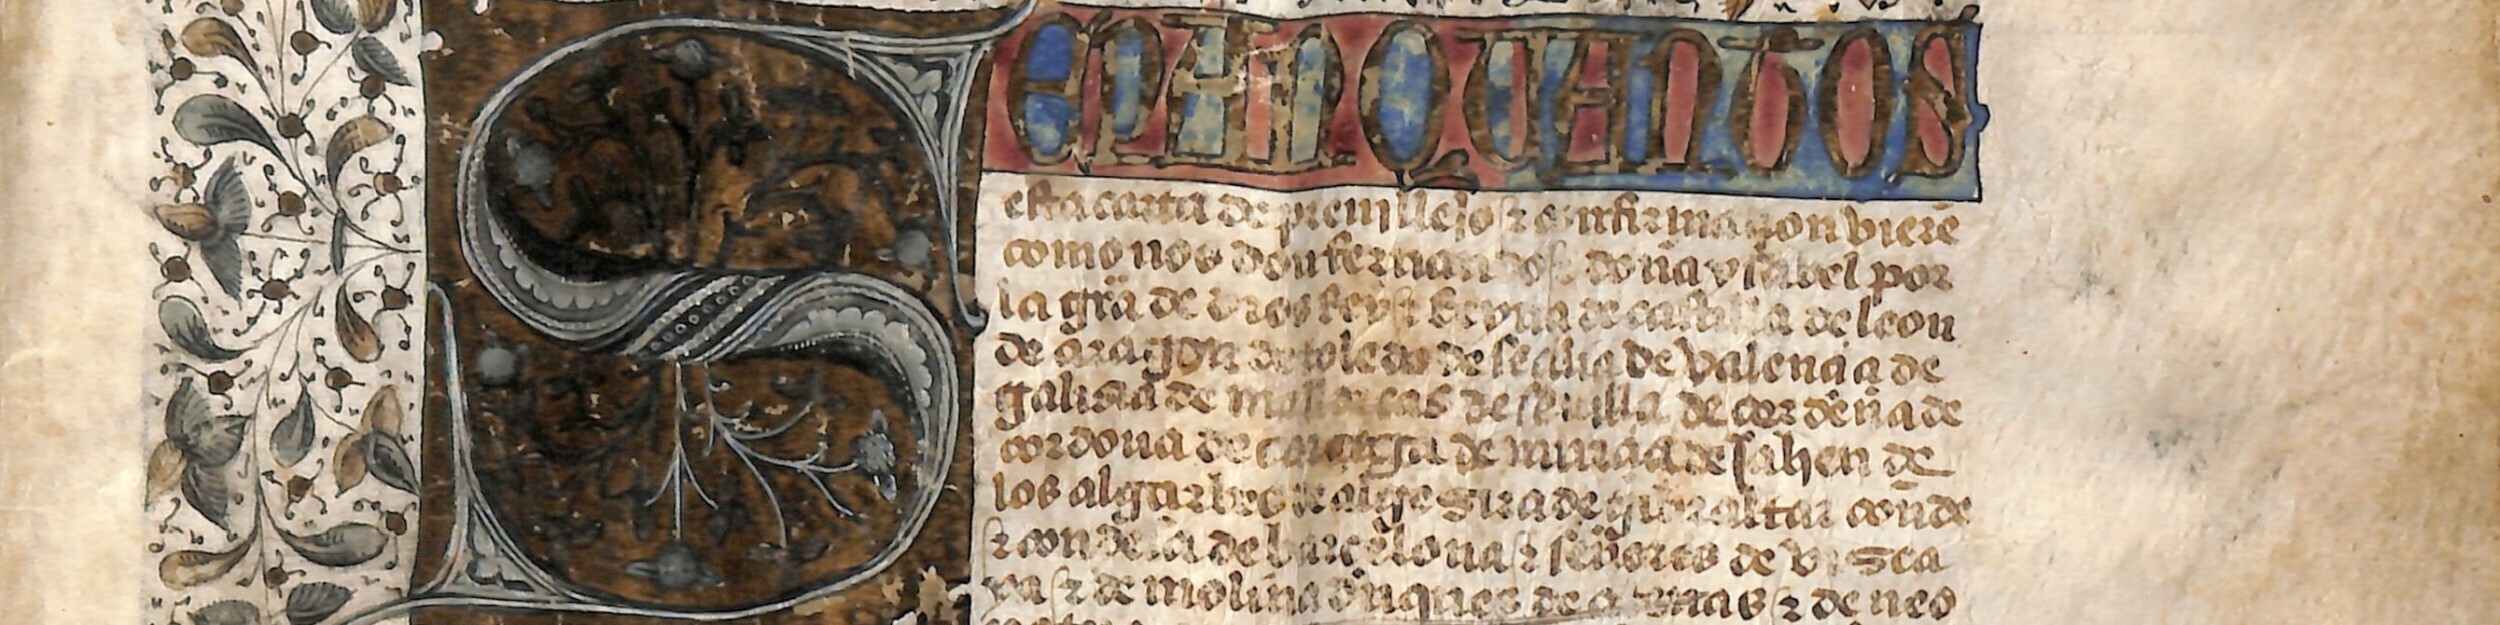 SEPAN QUANTOS
esta carta de preuillejo & confirmaçion viere
como nos don fernando & doña ysabel por
la gr̃a de dios Rey & Reyna de castilla de leon
de aragon de toledo de seçilia de valençia de
galisia de mallorcas de seuilla de cerdeña de
cordoua de corçega de murçia de Jahen de
los algarbes de algesira de gibraltar conde
& condesa de barçelona & señores de visca
ya & de molina duques de atenas & de neo